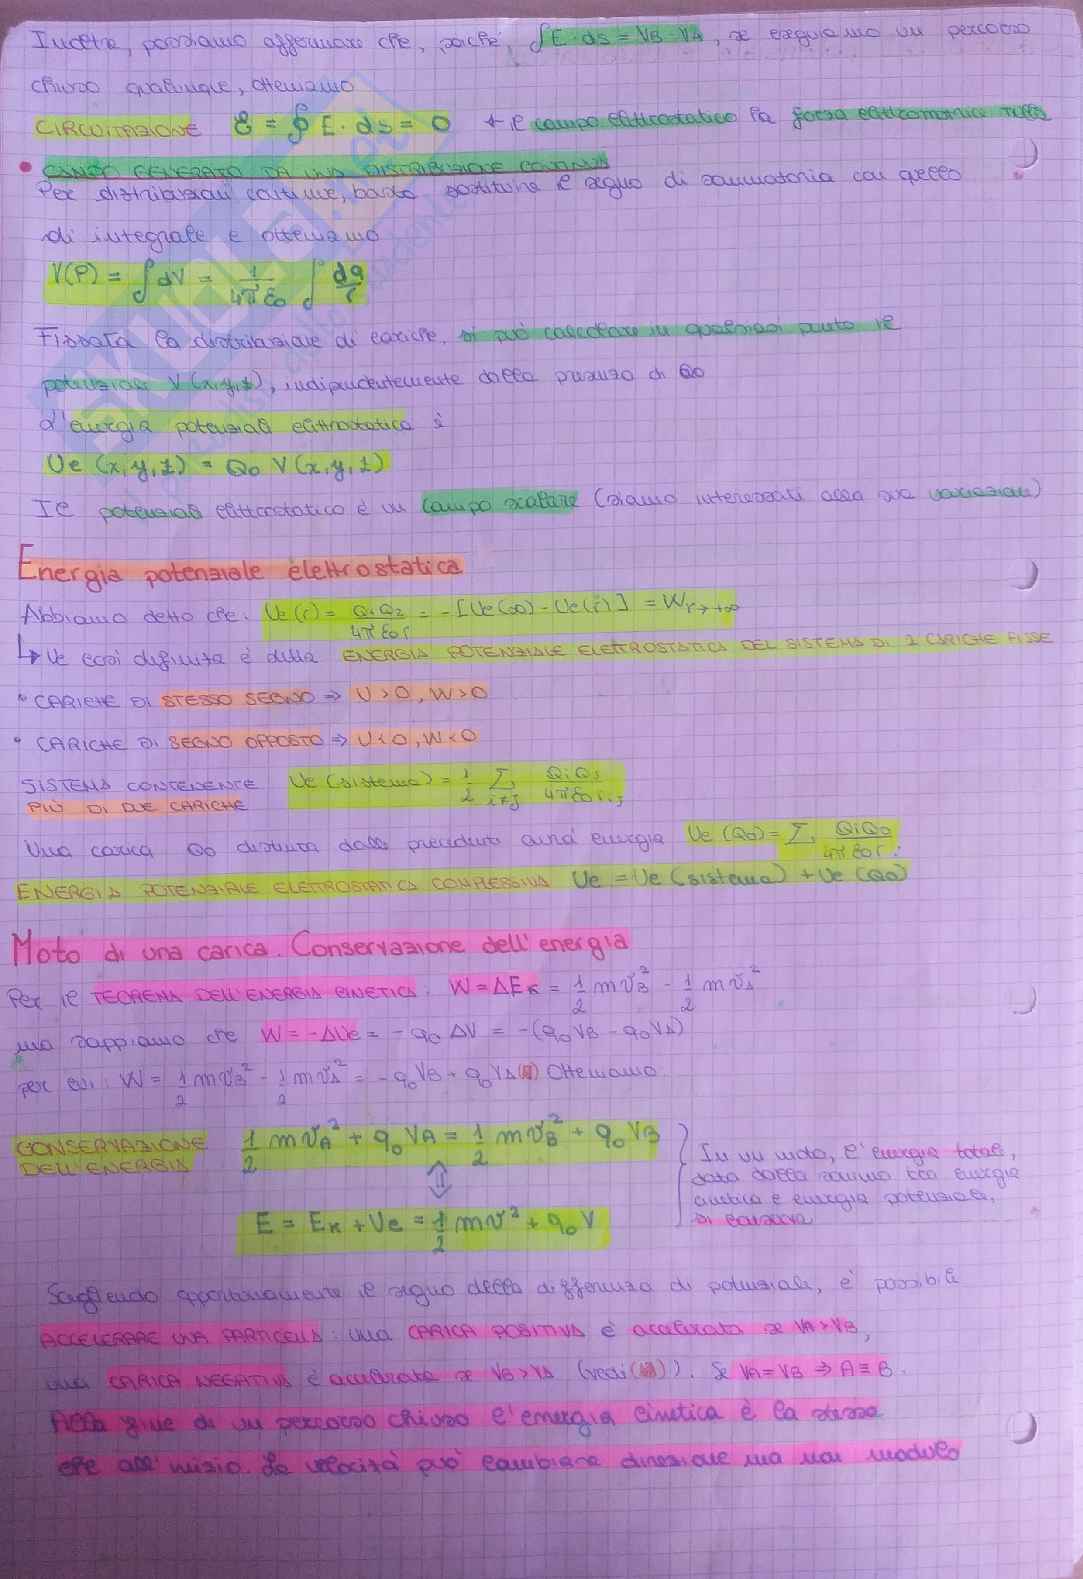 Inoltre, possiamo affermare che, poiché, ∫E·ds = VB - VA, se eseguiamo un percorso
chiuso qualunque, otteniamo
CIRCUITAZIONE ℰ = ∮ E· ds = 0 → il campo elettrostatico ha forza elettromotrice nulla
• CAMPO GENERATO DA UNA DISTRIBUZIONE CONTINUA
Per distribuzioni continue, basta sostituire il segno di sommatoria con quello
di integrale e otteniamo
V(P) = ∫dV = 1/4πε0 ∫ dq/r
Fissata la distribuzione di cariche, si può calcolare in qualsiasi punto il
potenziale V(x,y,z), indipendentemente dalla presenza di Q0
L'energia potenziale elettrostatica è
Ue (x,y,z) = Q0 V(x,y,z)
Il potenziale elettrostatico è un campo scalare (siamo interessati alla sua variazione)
Energia potenziale elettrostatica
Abbiamo detto che: Ue(r) = Q1Q2/4πε0r = -[Ue(∞) - Ue(r)] = Wr→+∞
↳ Ue così definita è detta ENERGIA POTENZIALE ELETTROSTATICA DEL SISTEMA DI 2 CARICHE FISSE
• CARICHE DI STESSO SEGNO ⇒ U>0, W>0
• CARICHE DI SEGNO OPPOSTO ⇒ U<0, W<0
SISTEMA CONTENENTE Ue (sistema) = 1/2 Σi≠j QiQj/4πε0ri,j
PIÙ DI DUE CARICHE
Una carica Q0 distinta dalle precedenti avrà energia Ue (Q0) = Σi QiQ0/4πε0ri
ENERGIA POTENZIALE ELETTROSTATICA COMPLESSIVA Ue = Ue (sistema) + Ue (Q0)
Moto di una carica. Conservazione dell'energia
Per il TEOREMA DELL'ENERGIA CINETICA: W = ΔEk = 1/2 mvB² - 1/2 mvA²
ma sappiamo che W = -ΔUe = -q0 ΔV = -(q0VB - q0VA)
per cui: W = 1/2 mvB² - 1/2 mvA² = -q0VB + q0VA Otteniamo
CONSERVAZIONE DELL'ENERGIA 1/2 mvA² + q0VA = 1/2 mvB² + q0VB
⇕
E = Ek + Ue = 1/2 mv² + q0V
In un moto, l'energia totale,
data dalla somma tra energia
cinetica e energia potenziale,
si conserva
Scegliendo opportunamente il segno della differenza di potenziale, è possibile
ACCELERARE UNA PARTICELLA: una CARICA POSITIVA è accelerata se VA>VB,
una CARICA NEGATIVA è accelerata se VB>VA (vedi ). Se VA=VB ⇒ A≡B.
Alla fine di un percorso chiuso l'energia cinetica è la stessa
che all'inizio. La velocità può cambiare direzione ma mai modulo